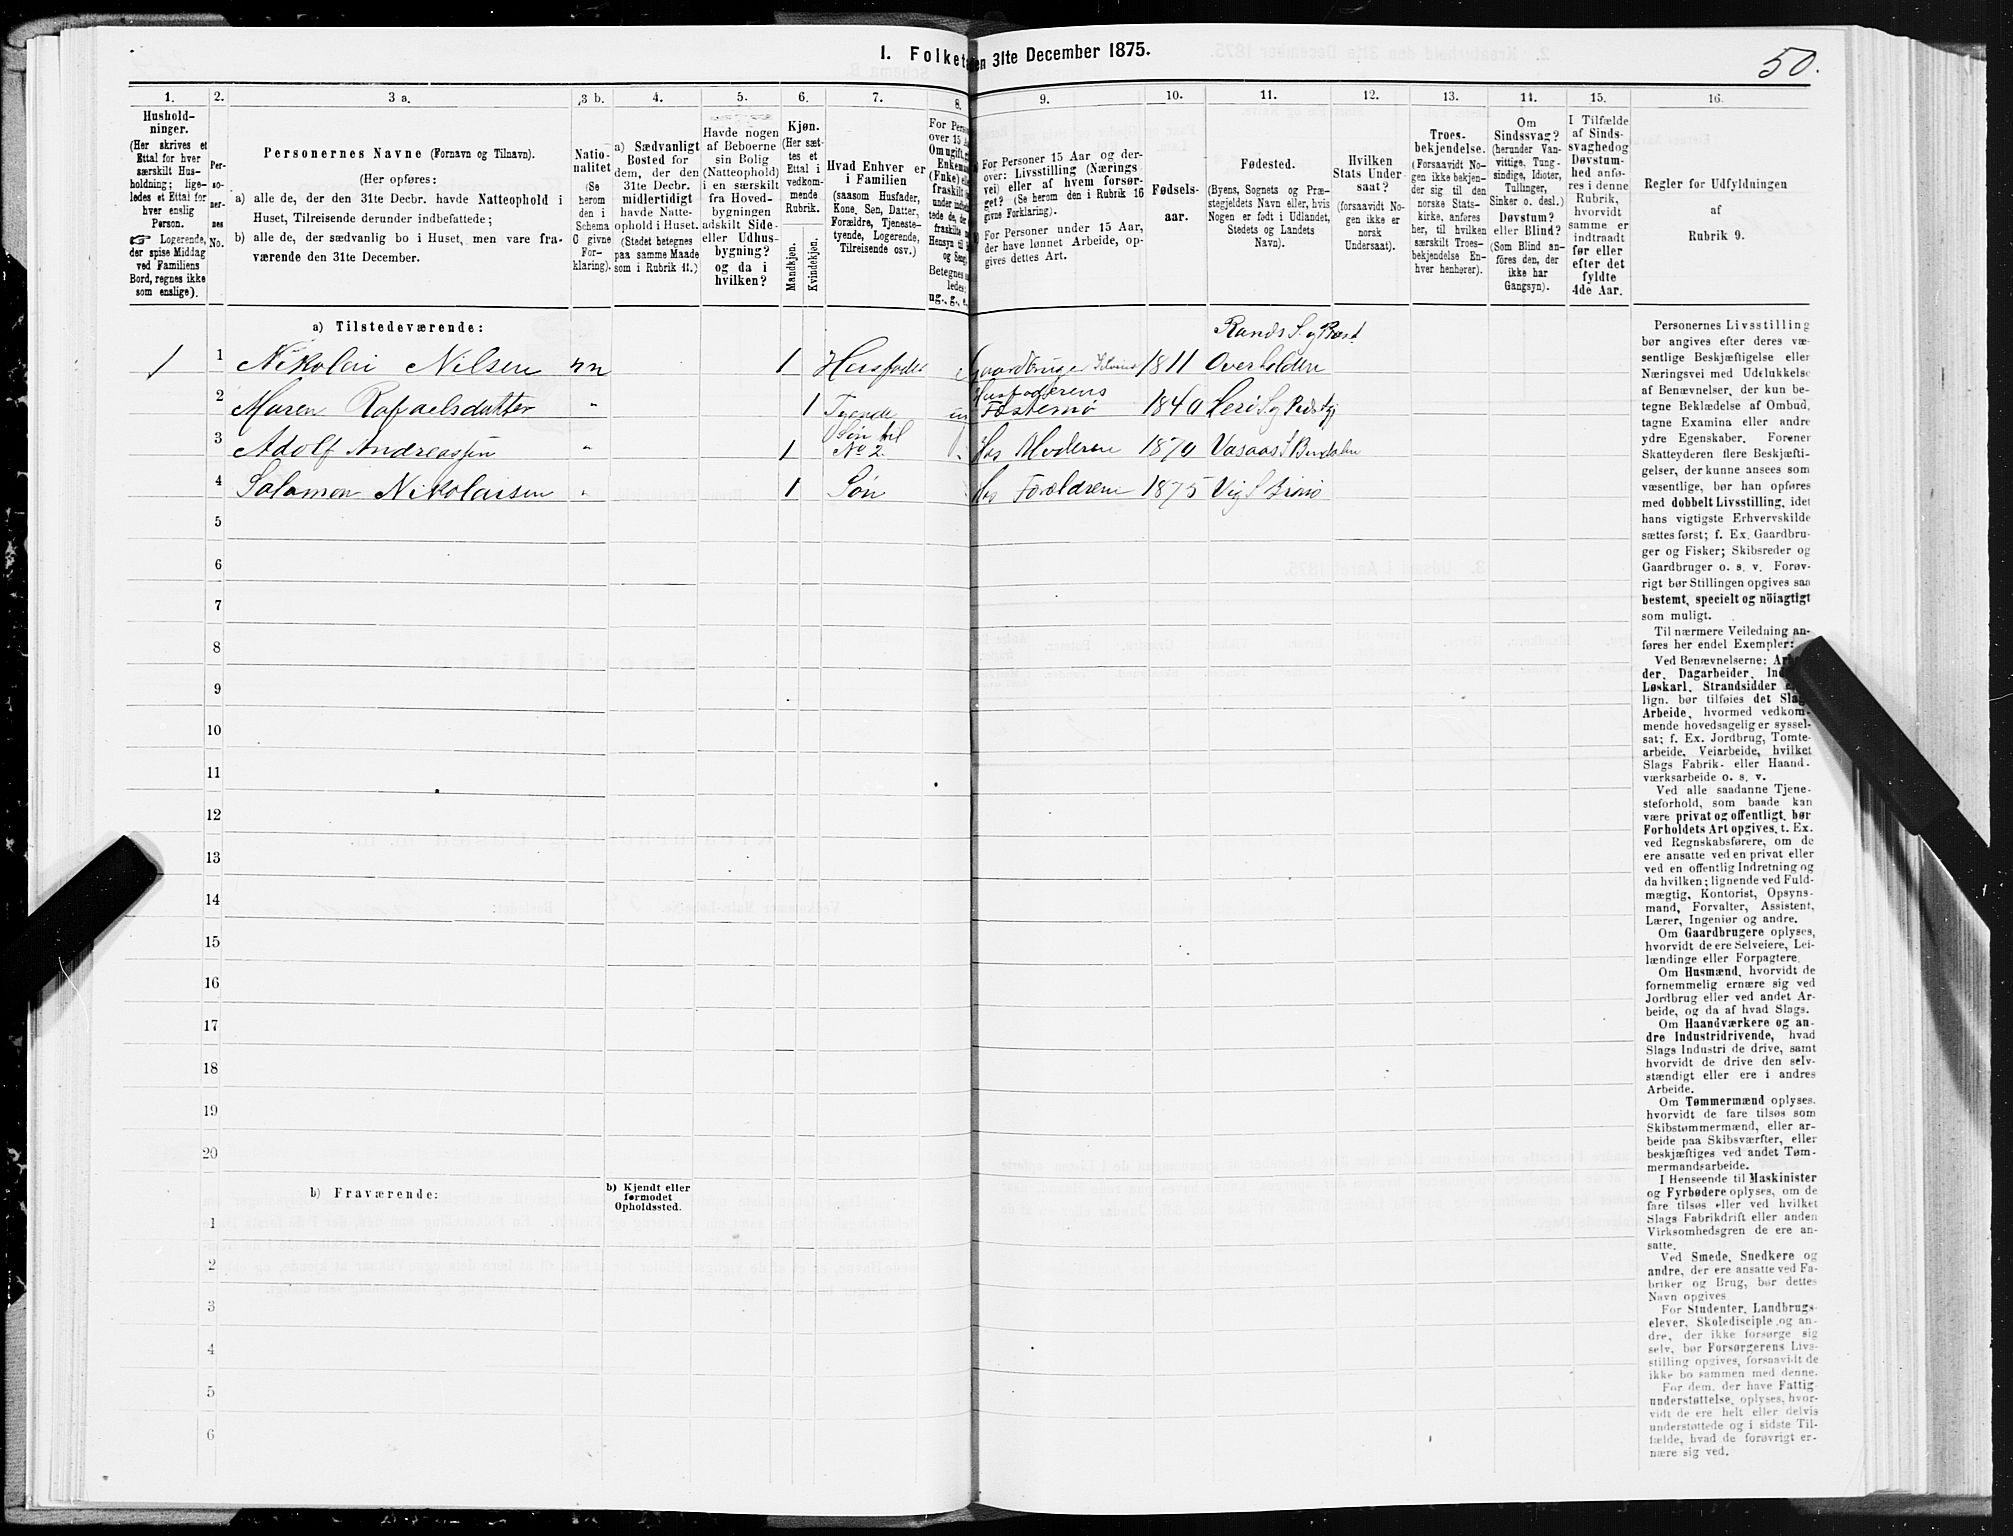 I. Folket
en 31te December 1875.
50.
1.
Hushold-
ninger.
(Her skrives et
Ettal for hver
særskilt Hus-
holdning; lige-
ledes et Ettal for
hver enslig
Person.
☞ Logerende,
der spise Middag
ved Familiens
Bord, regnes ikke
som enslige).
2.
Per-
so-
ner-
nes
No.
3 a.
Personernes Navne (Fornavn og Tilnavn).
(Her opføres:
a) alle de, der den 31te Decbr. havde Natteophold i
Huset, Tilreisende derunder indbefattede;
b) alle de, der sædvanlig bo i Huset, men vare fra-
værende den 31te December.
3 b.
Natio-
nalitet
(Se
herom
den i
Schema
O givne
For-
klaring).
4.
a) Sædvanligt
Bosted for
dem, der den
31te Decbr.
midlertidigt
havde Natte-
ophold i Huset.
(Stedet betegnes
paa samme Maade
som i Rubrik 11.)
5.
Havde nogen
af Beboerne
sin Bolig
(Natteophold)
i en særskilt
fra Hoved-
bygningen
adskilt Side-
eller Udhus-
bygning?
og da i
hvilken?
6.
Kjøn.
(Her sæt-
tes et
Ettal i
vedkom-
mende
Rubrik.
Mandkjøn.
Kvindekjøn.
7.
Hvad Enhver er
i Familien
(saasom Husfader,
Kone, Søn, Datter,
Forældre, Tjeneste-
tyende, Logerende,
Tilreisende osv.)
8.
For Perso
over 15 A
Om ugift, g
Enkem
(Fnke) el
fraskilt
under indbe
tede de, de
fraskilte
Hensyn til
og Seng
Betegnes
ledes:
ug., g., e.
9.
For Personer 15 Aar og der-
over: Livsstilling (Nærings
vei) eller af hvem forsør-
get? (Se herom den i Rubrik 16
givne Forklaring).
For Personer under 15 Aar,
der have lønnet Arbeide, op-
gives dettes Art.
10.
Fødsels-
aar.
11.
Fødested.
(Byens, Sognets og Præ-
stegjeldets Navn eller, hvis
Nogen er født i Udlandet,
Stedets og Landets
Navn).
12.
Hvilken
Stats Under-
saat?
(forsaavidt No-
gen ikke er
norsk
Undersaat).
13.
Troes-
bekjendelse.
(Forsaavidt No-
gen ikke bekjen-
der sig til den
norske Stats-
kirke, anføres
her, til hvilken
særskilt Troes-
bekjendelse En-
hver henhører).
14.
Om
Sindssvag?
(herunder Van-
vittige, Tung-
sindige, Idioter,
Tullinger,
Sinker o. desl.)
Døvstum?
eller Blind?
(Som Blind an-
föres den, der
ikke har
Gangsyn).
15.
I Tilfælde
af Sinds-
svaghed og
Døvstum-
hed anfø-
res i denne
Rubrik,
hvorvidt
samme er
indtraadt
før eller
efter det
fyldte
4de Aar.
16.
Regler for Udfyldningen
af
Rubrik 9.
a) Tilstedeværende:
1 1 Nikolai Nilsen nn 1 Husfader Gaardbruger 1811 Overholden
2 Maren Rafaelsdatter " 1 Tyende Husfaderens 1840
3 Adolf Andreassen " 1 Søn til No 2. Hos Moderen 1870
4 Salamon Nikolaisen " 1 Søn Hos Forældrene 1875 Vig S Brønø
5
6
7
8
9
10
11
12
13
14
15
16
17
18
19
20
b) Fraværende:
b) Kjendt eller
formodet
Opholdssted.
1
2
3
4
5
6
Personernes Livsstilling
bør angives efter deres væ-
sentlige Beskjæftigelse eller
Næringsvei med Udelukkelse
af Benævnelser, der kun be-
tegne Beklædelse af Ombud,
tagne Examina eller andre
ydre Egenskaber. Forener
Skatteyderen flere Beskjæfti-
gelser, der kunne ansees som
væsentlige, bør han opføres
med dobbelt Livsstilling, idet
hans vigtigste Erhvervskilde
sættes først; f. Ex. Gaardbru-
ger og Fisker; Skibsreder og
Gaardbruger o. s. v. Forøv-
rigt bør Stillingen opgives saa
bestemt, specielt og nöiagtigt
som muligt.
Til nærmere Veiledning an-
føres her endel Exempler:
Ved Benævnelserne: Ar
der, Dagarbeider, Ind
Løskarl, Strandsidder
lign. bør tilføies det Slags
Arbeide, hvormed vedkom-
mende hovedsagelig er syssel-
sat; f. Ex. Jordbrug, Tomte-
arbeide, Veiarbeide, hvilket
Slags Fabrik- eller Haand-
værksarbeide o. s. v.
Ved alle saadanne Tjene-
steforhold, som baade kan
være privat og offentligt, bør
Forholdets Art opgives, t. Ex.
ved Regnskabsførere, om de
ere ansatte ved en privat eller
ved en offentlig Indretning og
da hvilken; lignende ved Fuld-
mægtig, Kontorist, Opsyns-
mand, Forvalter, Assistent,
Lærer, Ingeniør og andre.
Om Gaardbrugere oplyses,
hvorvidt de ere Selveiere, Lei-
lændinge eller Forpagtere.
Om Husmænd, hvorvidt de
fornemmelig ernære sig ved
Jordbrug eller ved andet Ar-
beide, og da af hvad Slags.
Om Haandværkere og an-
dre Industridrivende, hvad
Slags Industri de drive, samt
hvorvidt de drive den selv-
stændigt eller ere i andres
Arbeide.
Om Tømmermænd oplyses,
hvorvidt de fare tilsøs som
Skibstømmermænd, eller ar-
beide paa Skibsværfter, eller
beskjæftiges ved andet Tøm-
mermandsarbeide.
I Henseende til Maskinister
og Fyrbødere oplyses, om de
fare tilsøs eller ved hvilket
Slags Fabrikdrift eller anden
Virksomhedsgren de ere an-
satte.
Ved Smede, Snedkere og
andre, der ere ansatte ved Fa-
briker og Brug, bør dettes
Navn opgives
For Studenter, Landbrugs-
elever, Skoledisciple og an-
dre, der ikke forsørge sig
selv, bør Forsørgerens Livs-
stilling opgives, forsaavidt de
ikke bo sammen med denne.
For dem, der have Fattig-
understøttelse, oplyses, hvor-
vidt de ere helt eller delvis
understøttede og i sidste Til-
fælde, hvad de forøvrigt er-
nære sig ved.